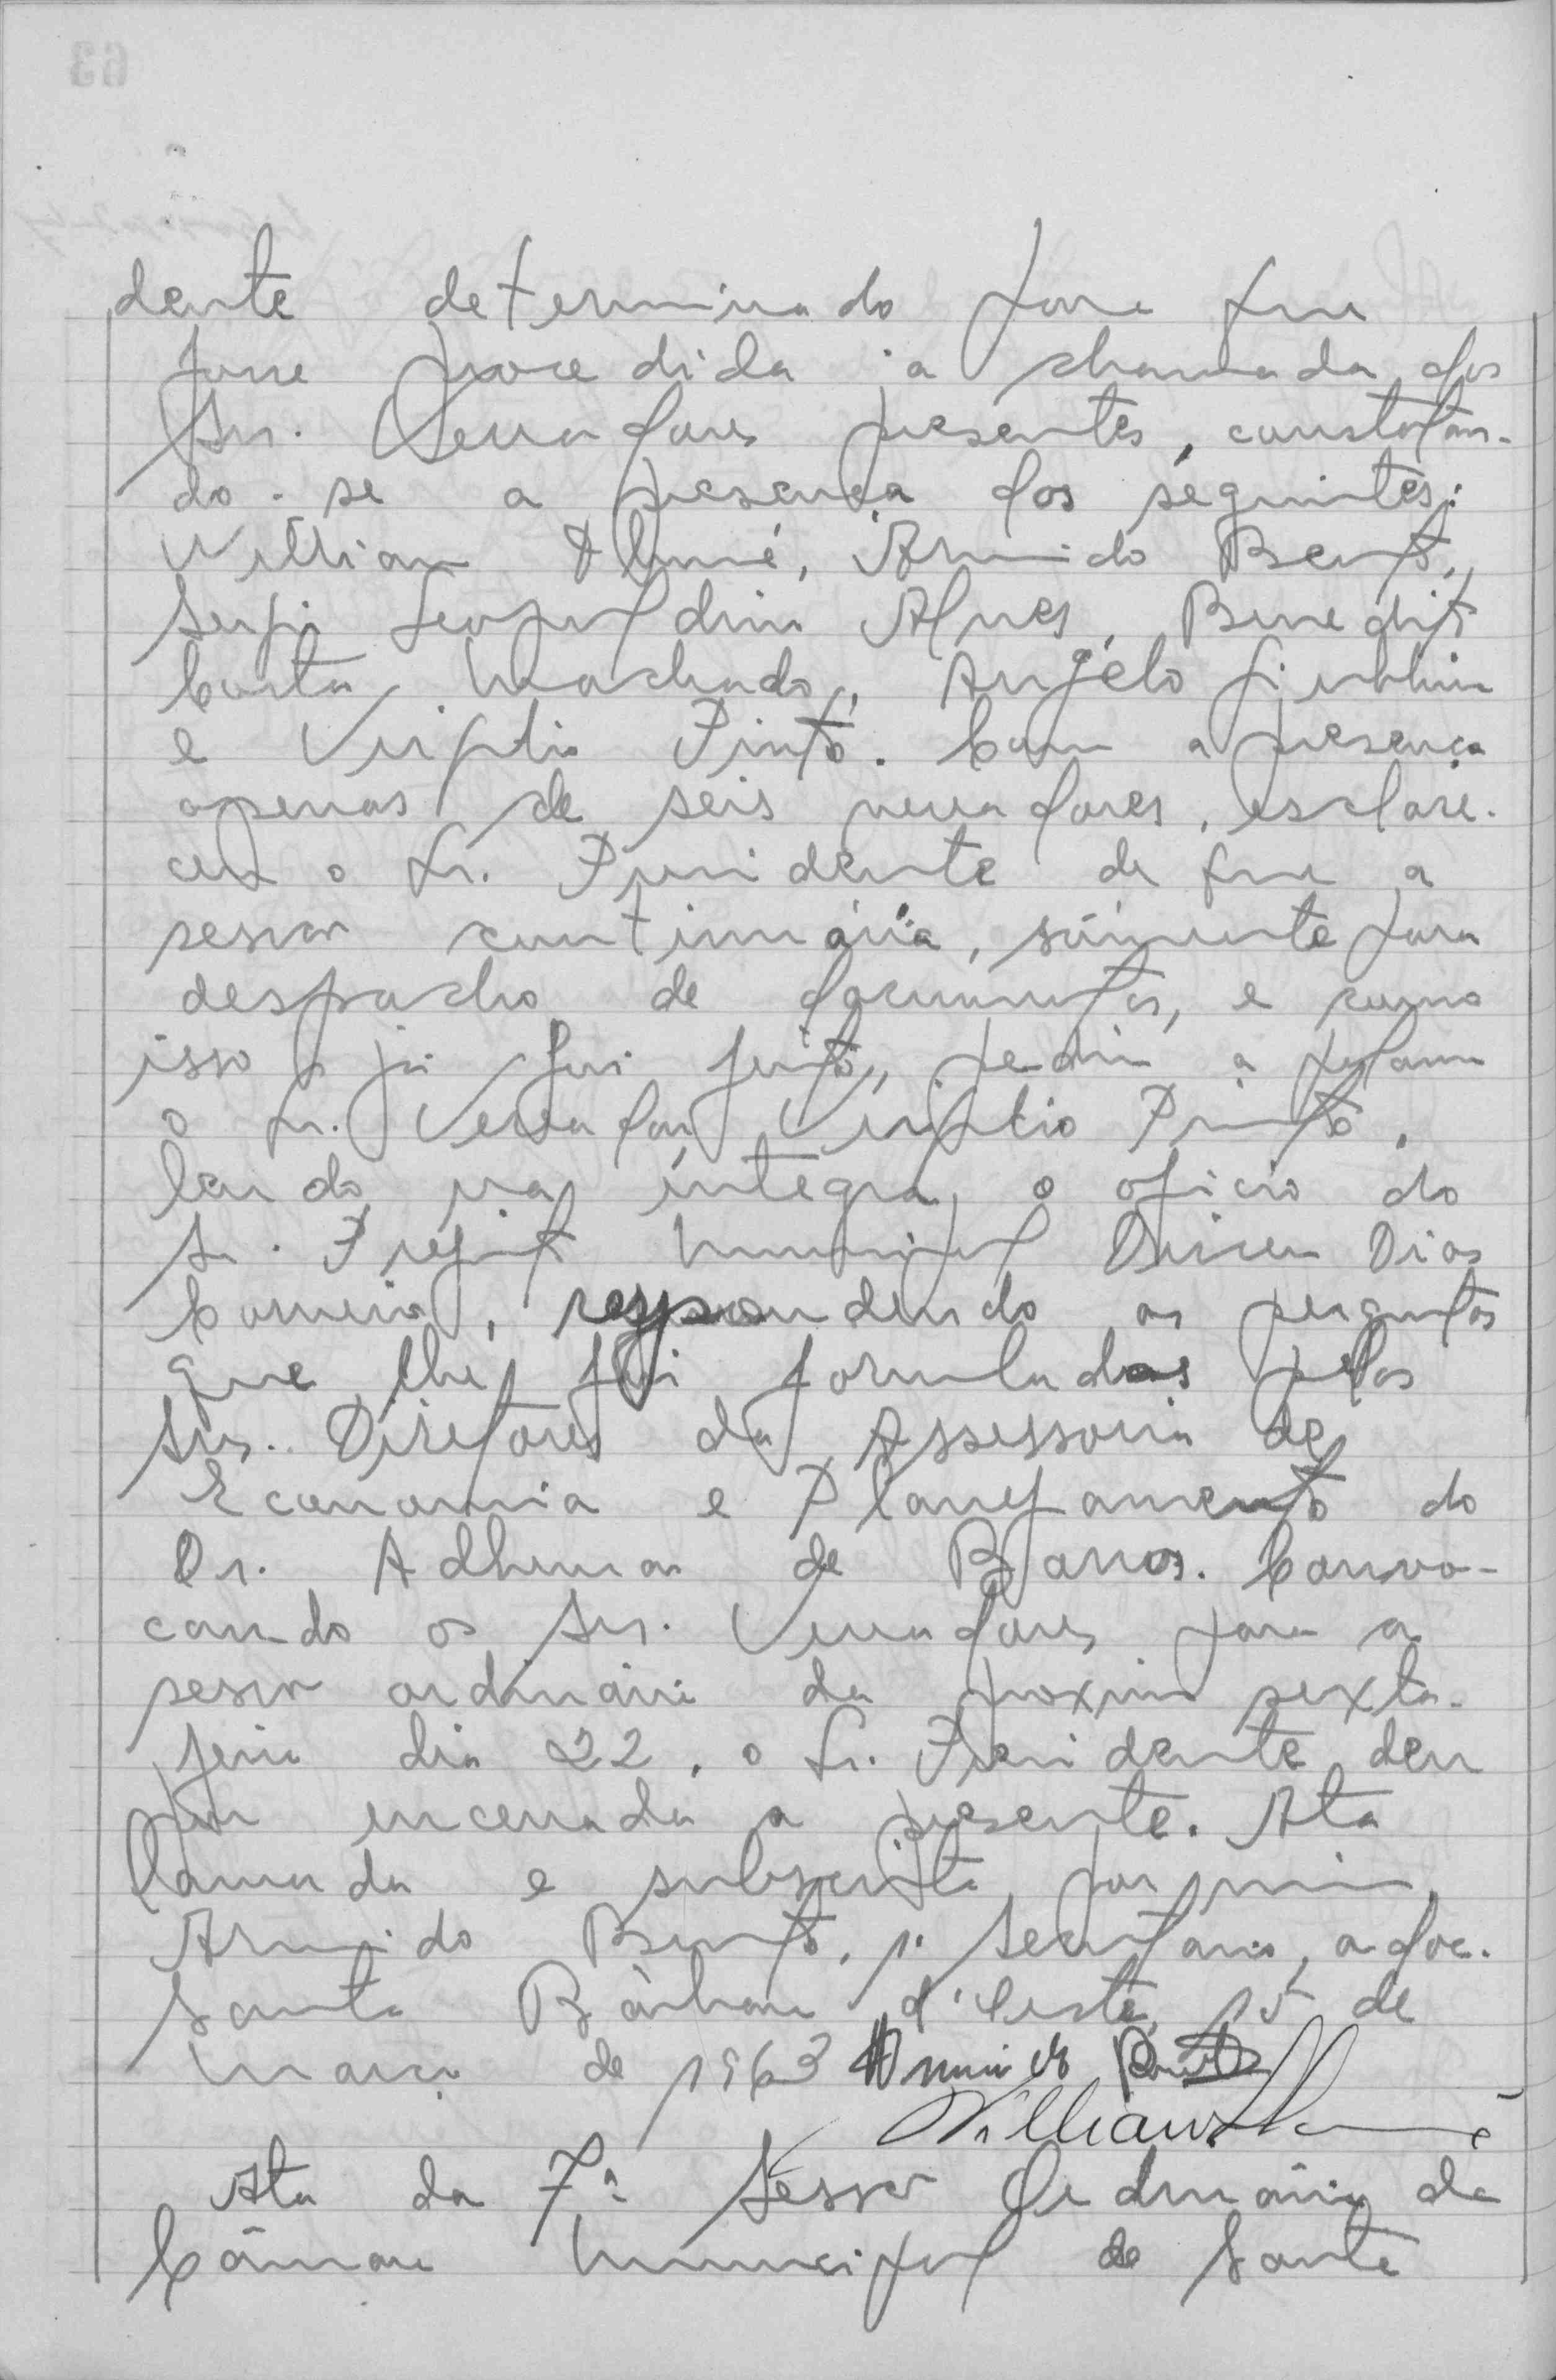 dente determinado para que
fosse procedida a chamada dos
Srs. Vereadores presentes, constatan-
do-se a presença dos seguintes:
Willian Armindo Bento,
Sergio Leopoldino Alves, Benedito
Costa Machado, Angelo Giubbina
e Virgilio Pinto. Com a presença
apenas de seis vereadores, esclare-
ceu o Sr. Presidente de que a
sessão continuária, sómente para
despacho de documentos, e como
isso já foi feito, pediu a palavra
o Sr. Vereador Virgilio Pinto,
lendo na íntegra, o oficio do
Sr. Prefeito Municipal Dirceu Dias
Carneiro, respondendo as perguntas
que lhe foi formuladas pelos
Srs. Diretores da Assessoria de
Economia e Planejamento do
Dr. Adhemar de Barros. Convo-
cando os Srs. Vereadores para a
sessão ordinária da proxima sexta-
feira dia 22, o Sr. Presidente deu
por encerrada a presente. Ata
lavrada e subscrita por mim,
Armindo Bento, 1º Secretario, adoc.
Santa Bárbara d'Oeste, 15 de
março de 1963 Armindo Bento
Ata da 7ª Sessão Ordinária da
Câmara Municipal de Santa